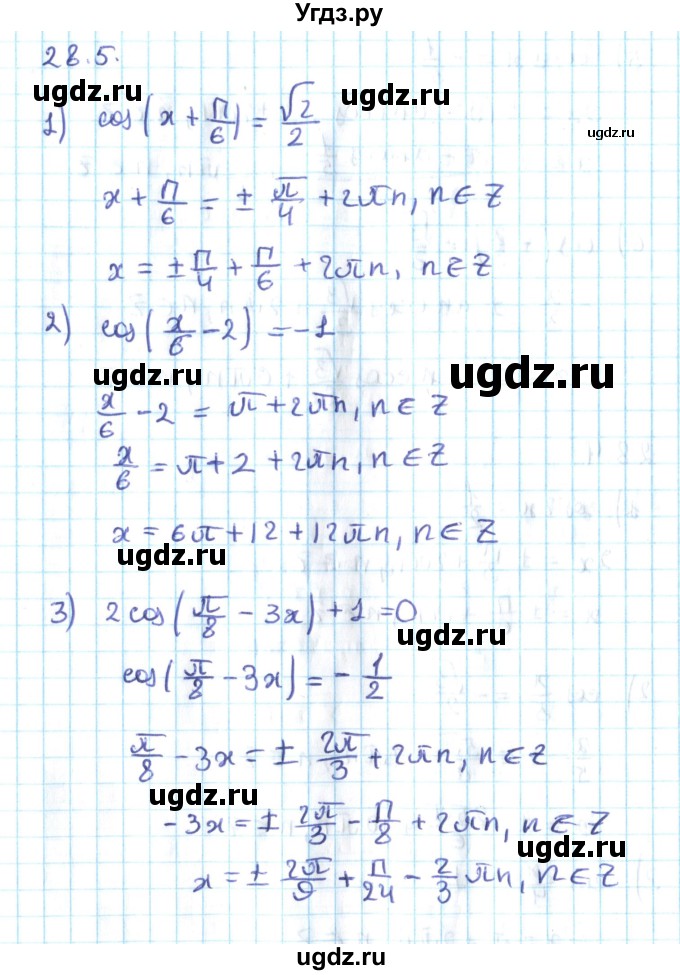 Угдз.ру
28.5.
ugdz.ru ugdz.ru
1) cos(x + П/6) = √2/2
ugdz.ru
x + П/6 = ± π/4 + 2πn, n ∈ Z
x = ± П/4 + П/6 + 2πn, n ∈ Z
2) cos(x/6 - 2) = -1
ugdz.ru ugdz.ru
x/6 - 2 = π + 2πn, n ∈ Z
x/6 = π + 2 + 2πn, n ∈ Z
x = 6π + 12 + 12πn, n ∈ Z
ugdz.ru ugdz.ru
3) 2cos(π/8 - 3x) + 1 = 0
cos(π/8 - 3x) = - 1/2
π/8 - 3x = ± 2π/3 + 2πn, n ∈ Z
ugdz.ru
-3x = ± 2π/3 - П/8 + 2πn, n ∈ Z
ugdz.ru
x = ± 2π/9 + П/24 - 2/3 πn, n ∈ Z
ugdz.ru